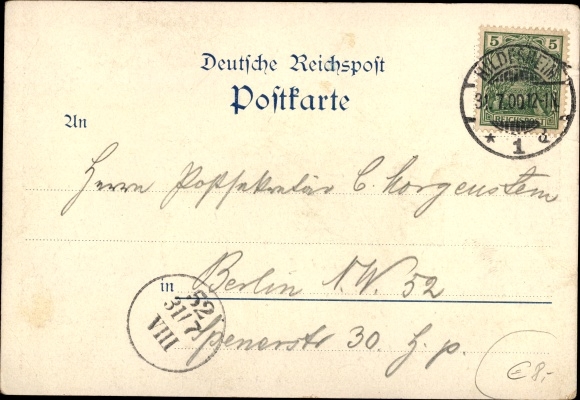 Deutsche Reichspost
Postkarte
5 5
REICHSPOST
HILDESHEIM
31.7.00.12-1N.
* 1 d
An
Herrn Postsekretär C. Morgenstern
in Berlin N.W. 52
Spenerstr 30. h. p.
52
31/7
VIII
€ 8,-